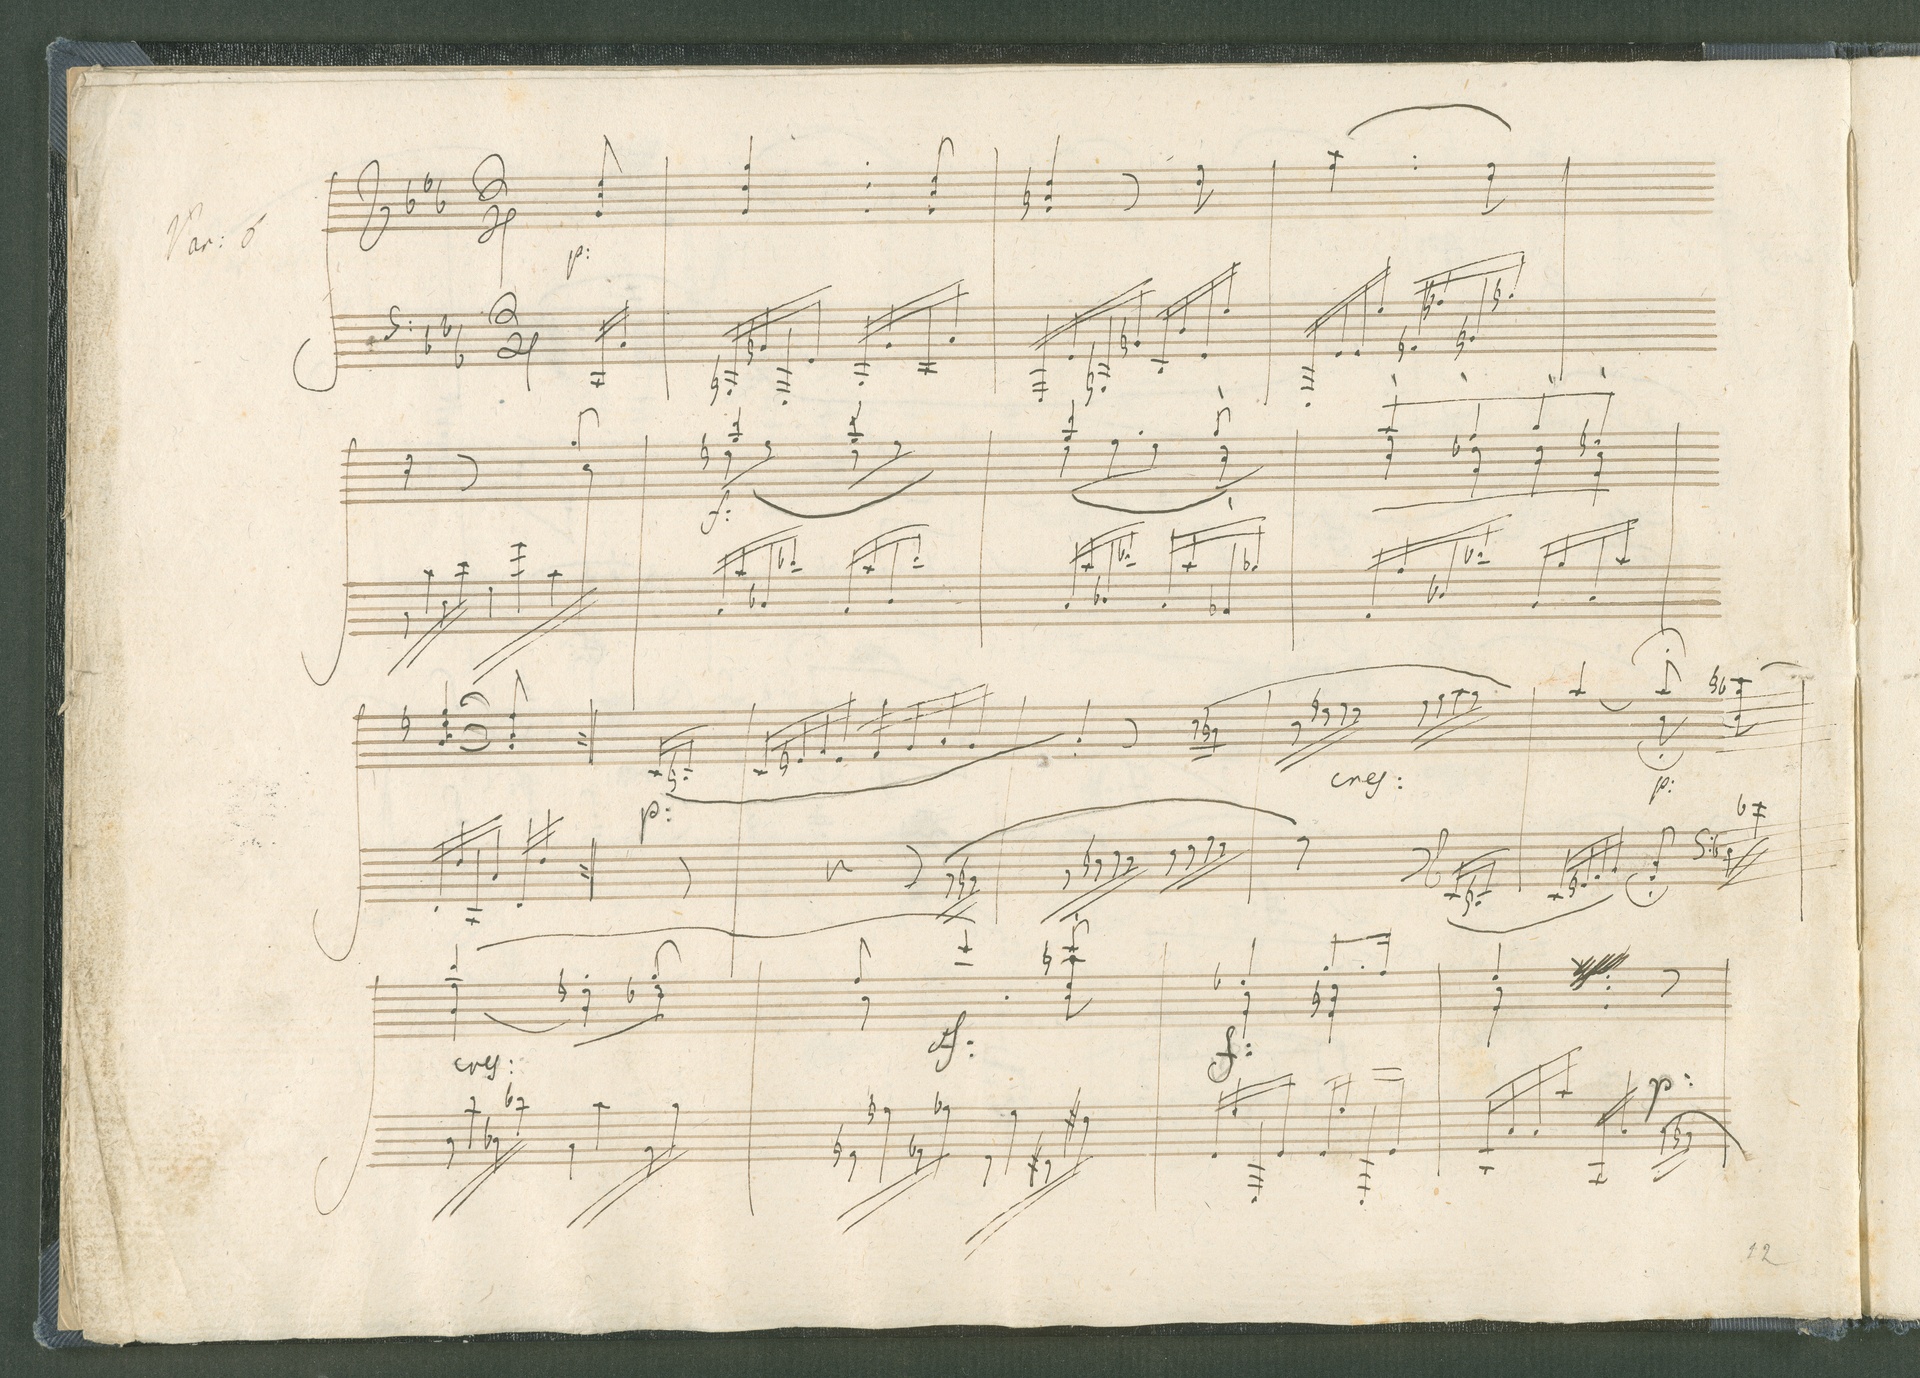 Var: 6
p:
f:
p:
cres:
p:
cres:
sf:
f:
p:
12